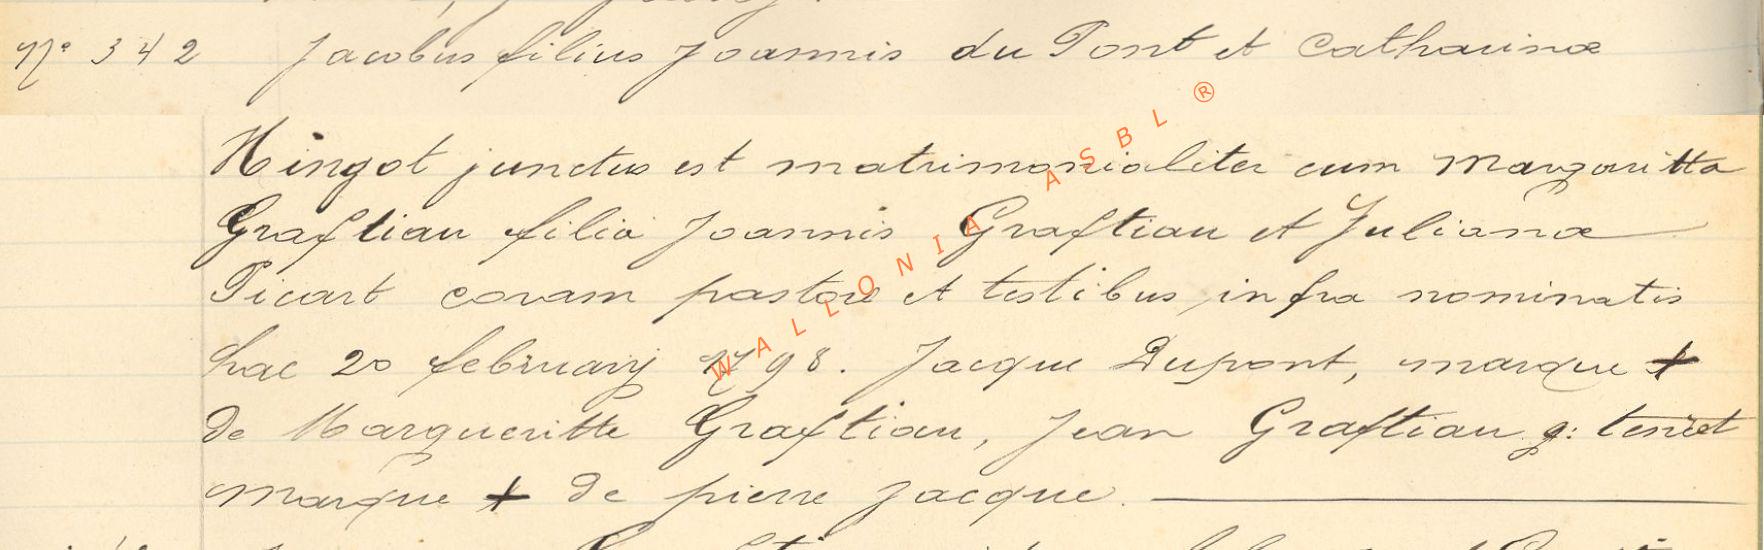 N° 342 Jacobus filius Joannis du Pont et Catharinæ
Hingot junctus est matrimonialiter cum Margaritta
Graftiau filia Joannis Graftiau et Julianæ
Picart coram pastore et testibus infra nominatis
hac 20 february 1798. Jacque Dupont, marque +
de Margueritte Graftiau, Jean Graftiau g:
marque + de pierre jacque.
WALLONIA ASBL ®